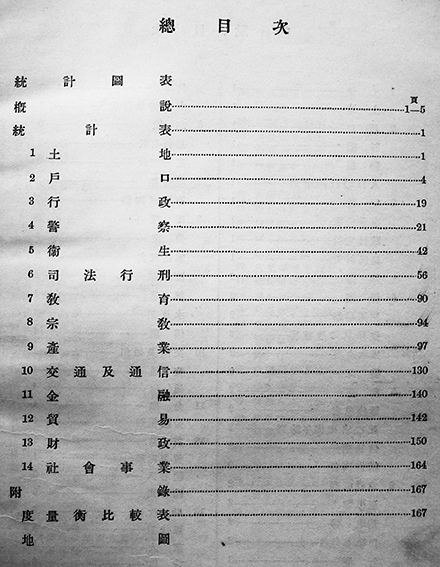 總目次
統計圖表
頁
概說 1—5
統計表 1
1 土地 1
2 戶口 4
3 行政 19
4 警察 21
5 衞生 42
6 司法行刑 56
7 敎育 90
8 宗敎 94
9 產業 97
10 交通及通信 130
11 金融 140
12 貿易 142
13 財政 150
14 社會事業 164
附錄 167
度量衡比較表 167
地圖